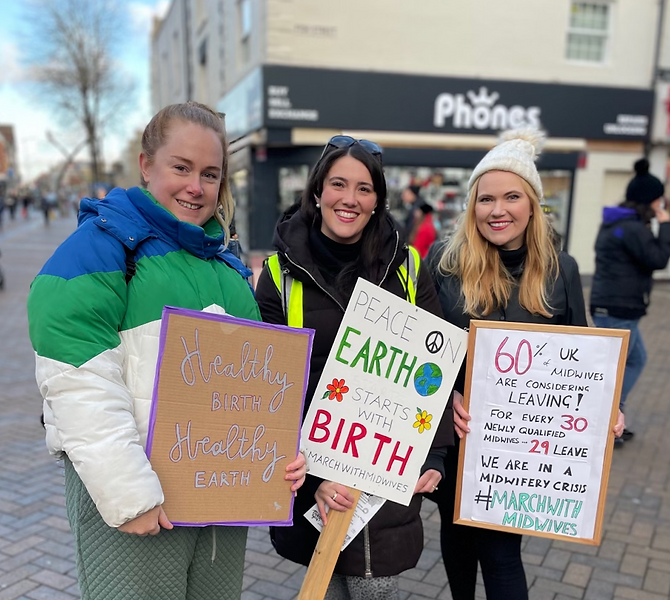 Phones
BUY
SELL
EXCHANGE
Healthy
BIRTH
Healthy
EARTH
PEACE ON
EARTH
STARTS
WITH
BIRTH
#MARCHWITHMIDWIVES
60% UK
of MIDWIVES
ARE CONSIDERING
LEAVING!
FOR EVERY 30
NEWLY QUALIFIED
MIDWIVES ... 29 LEAVE
WE ARE IN A
MIDWIFERY CRISIS
#MARCHWITH
MIDWIVES